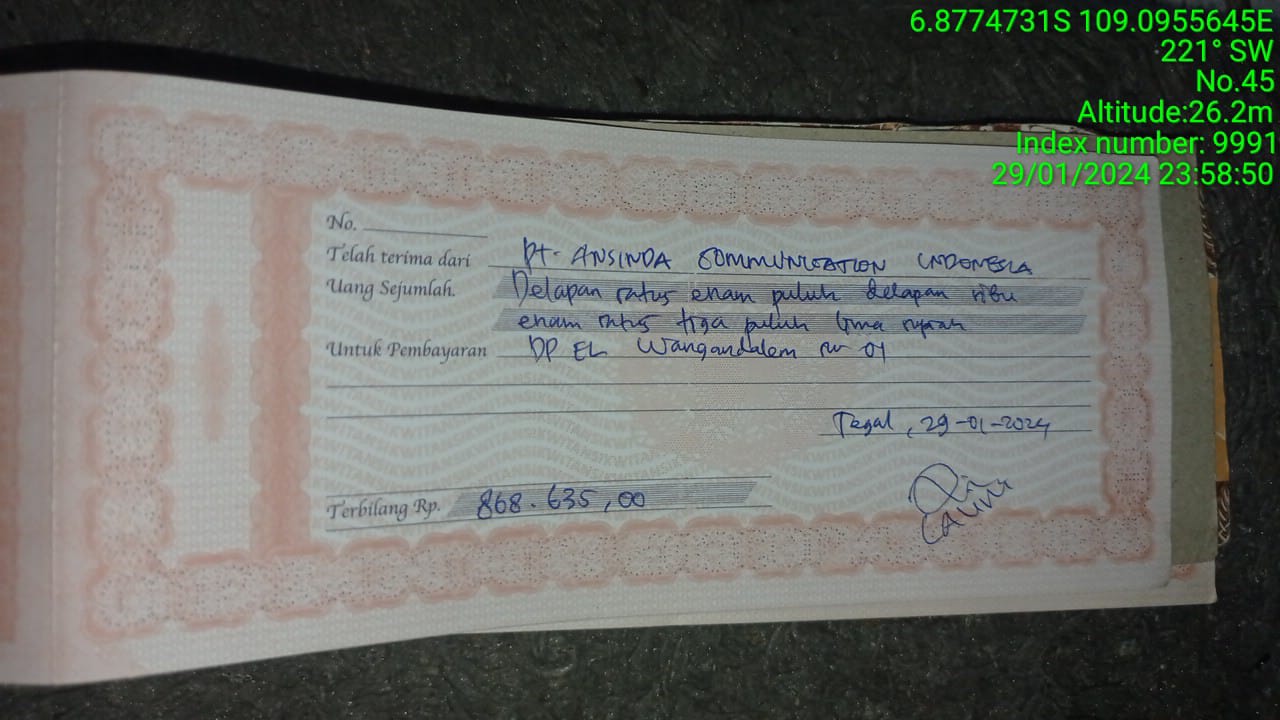 6.8774731S 109.0955645E
221° SW
No.45
Altitude:26.2m
Index number: 9991
29/01/2024 23:58:50
No.
Telah terima dari PT. ANSINDA COMMUNICATION INDONESIA
Uang Sejumlah. Delapan ratus enam puluh delapan ribu
enam ratus tiga puluh lima rupiah
Untuk Pembayaran DP EL Wangandalem rw 01
Tegal, 29-01-2024
Terbilang Rp. 868.635,00